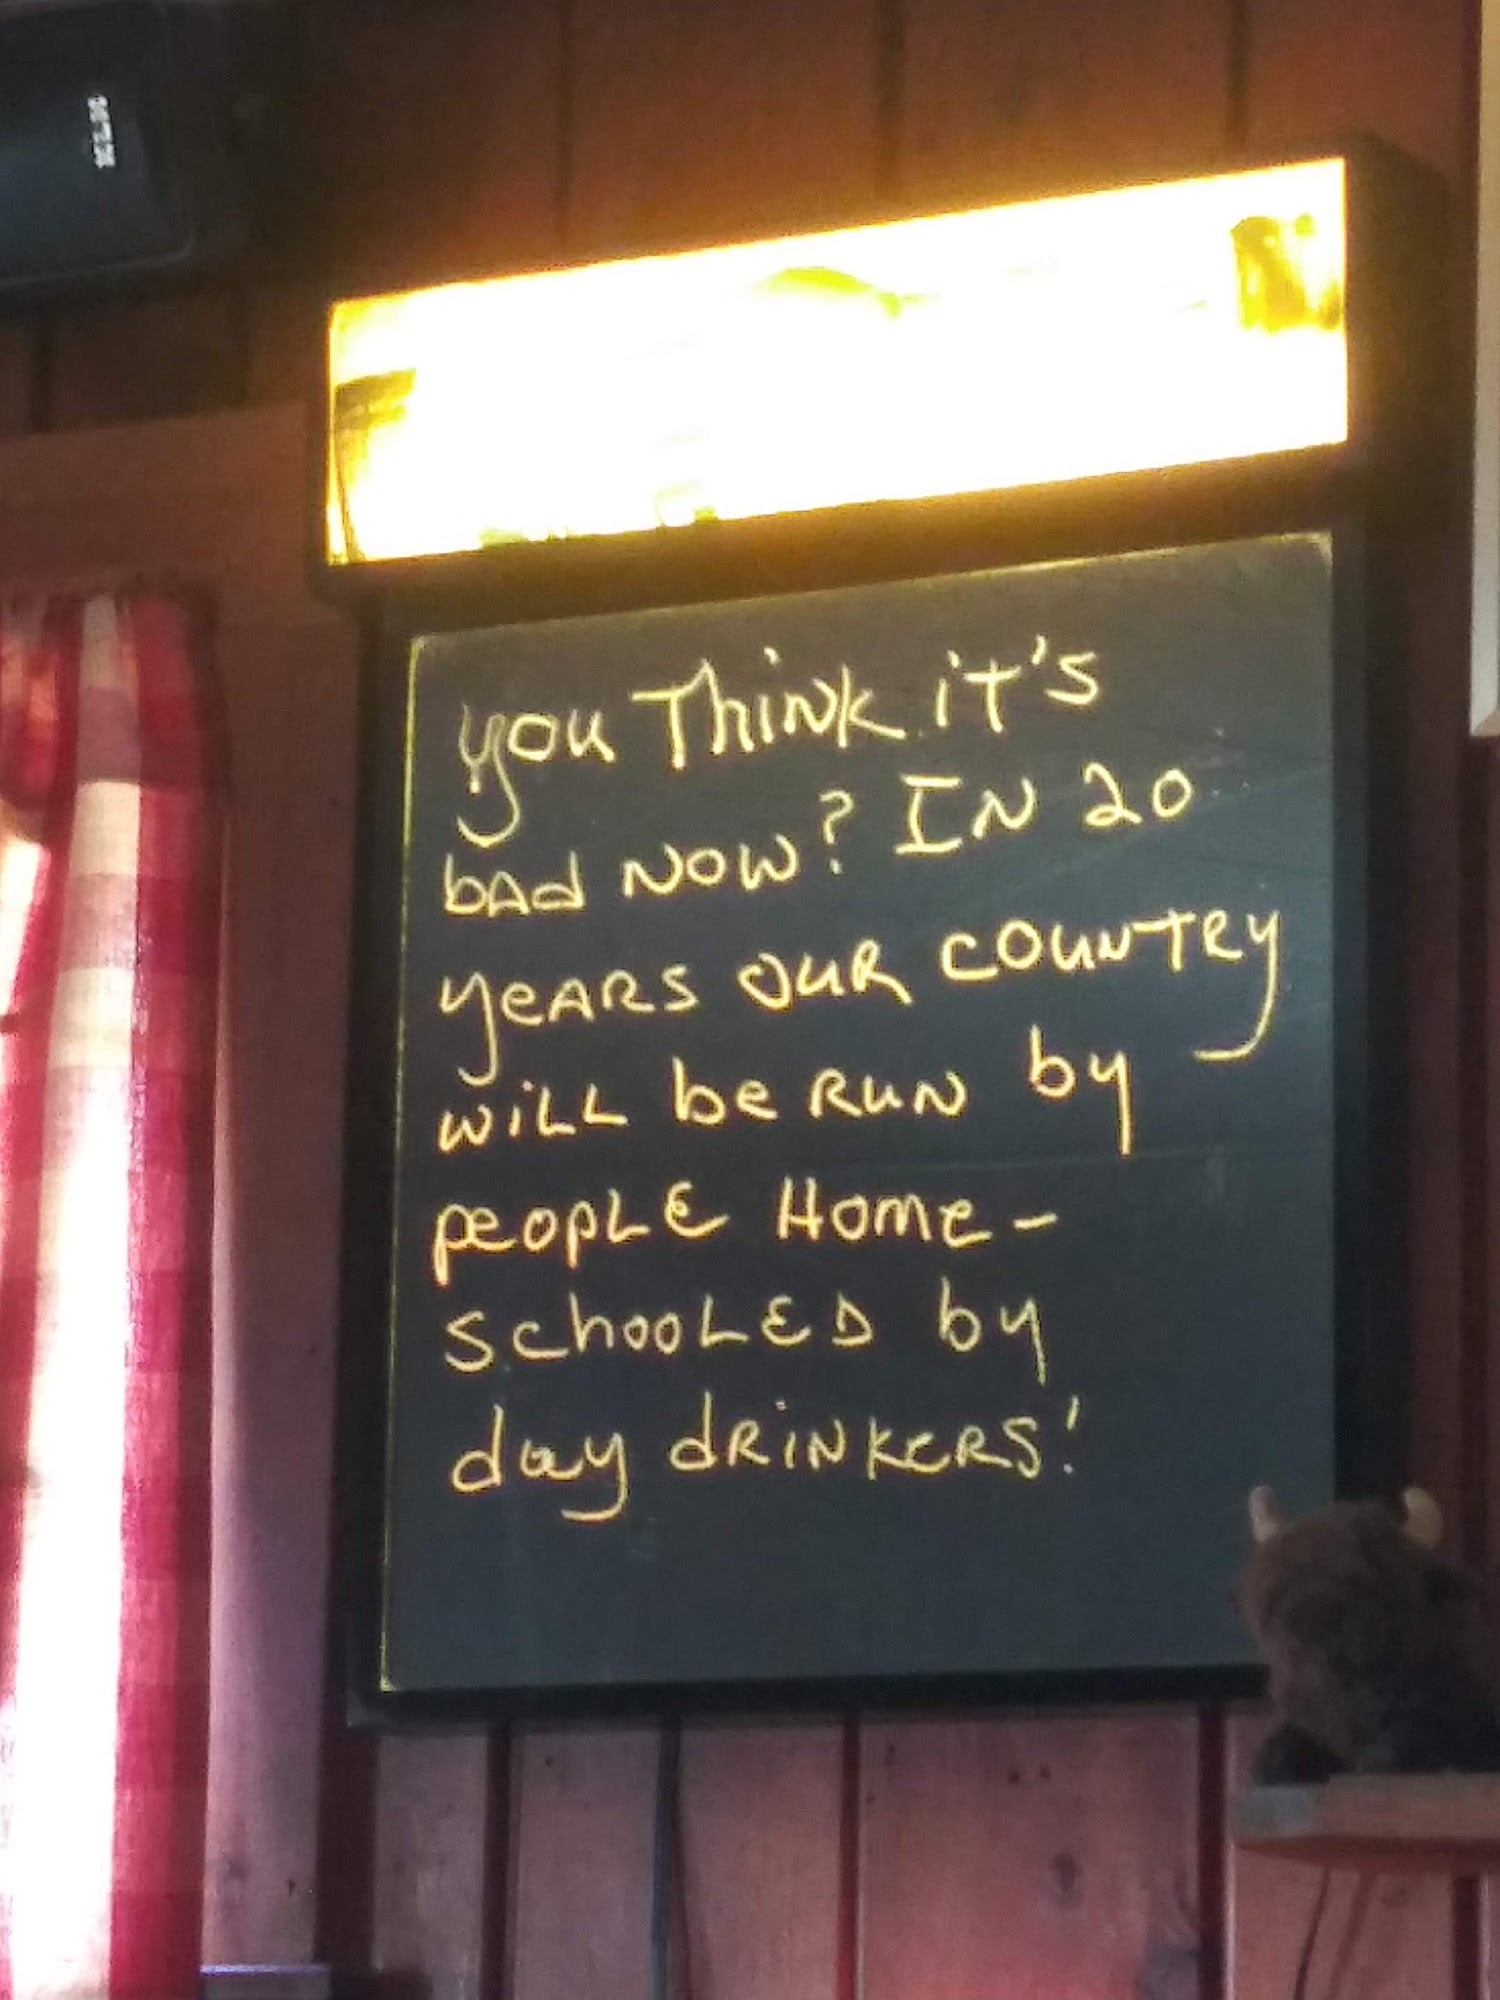 you Think it's
bad now? In 20
years our country
will be run by
people Home-
schooled by
day drinkers!